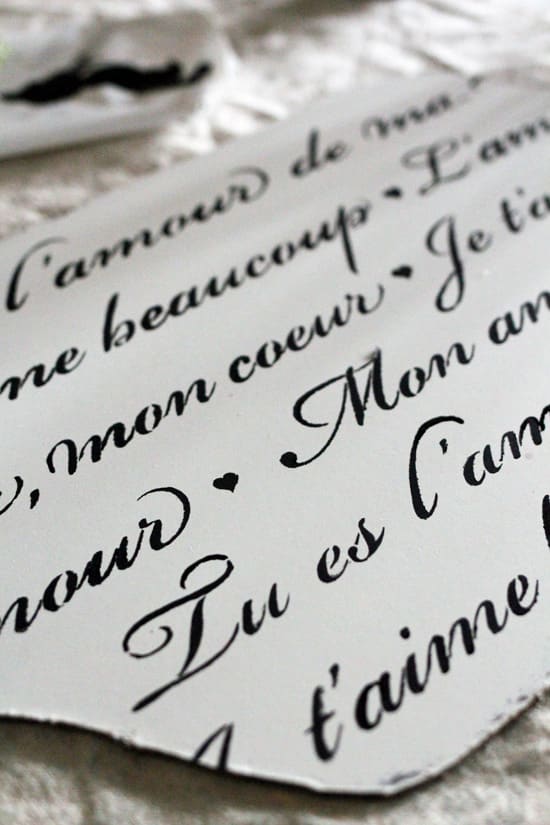 l'amour de ma
me beaucoup ♥ L'am
, mon coeur ♥ Je t'a
mour ♥ Mon am
Tu es l'am
t'aime